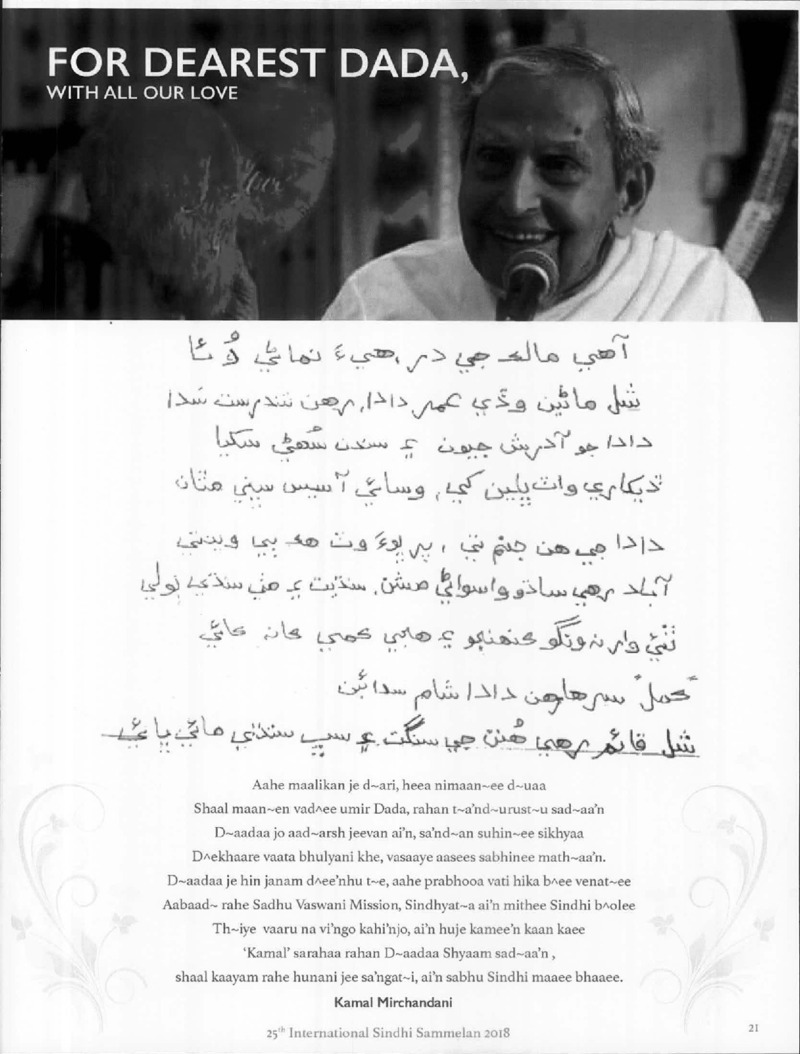 FOR DEAREST DADA,
WITH ALL OUR LOVE
آهي مالڪ جي در، هيءَ نماڻي دُعا
شل ماڻين وڏي عمر دادا، رهن تندرست سدا
دادا جو آدرش جيون ۽ سندن سُهڻي سکيا
ڏيکاري واٽ ڀلين کي، وسائي آسيس سڀني مٿان
دادا جي هن جنم تي، پرڀوءَ وٽ هڪ ٻي وينتي
آباد رهي ساڌو واسواڻي مشن، سنڌيت ۽ مٺي سنڌي ٻولي
ٿئي وار نہ ونگو ڪنهنجو ۽ هجي ڪمي ڪانہ ڪائي
”ڪمل“ سرهارهن دادا شام سدائين
شل قائم رهي هُنن جي سنگت ۽ سڀ سنڌي مائي ڀائي
Aahe maalikan je d~ari, heea nimaan~ee d~uaa
Shaal maan~en vad^ee umir Dada, rahan t~a'nd~urust~u sad~aa'n
D~aadaa jo aad~arsh jeevan ai'n, sa'nd~an suhin~ee sikhyaa
D^ekhaare vaata bhulyani khe, vasaaye aasees sabhinee math~aa'n.
D~aadaa je hin janam d^ee'nhu t~e, aahe prabhooa vati hika b^ee venat~ee
Aabaad~ rahe Sadhu Vaswani Mission, Sindhyat~a ai'n mithee Sindhi b^olee
Th~iye vaaru na vi'ngo kahi'njo, ai'n huje kamee'n kaan kaee
‘Kamal’ sarahaa rahan D~aadaa Shyaam sad~aa'n ,
shaal kaayam rahe hunani jee sa'ngat~i, ai'n sabhu Sindhi maaee bhaaee.
Kamal Mirchandani
25th International Sindhi Sammelan 2018
21